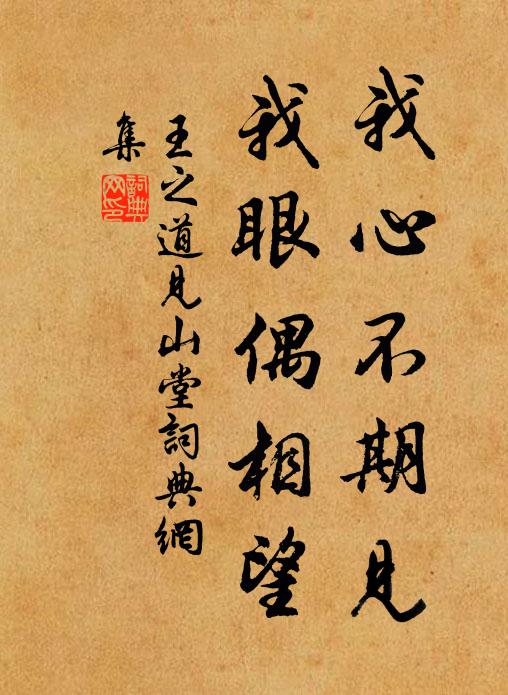 我心不期见
我眼偶相望
王之道见山堂詞典網
集
詞典
网印